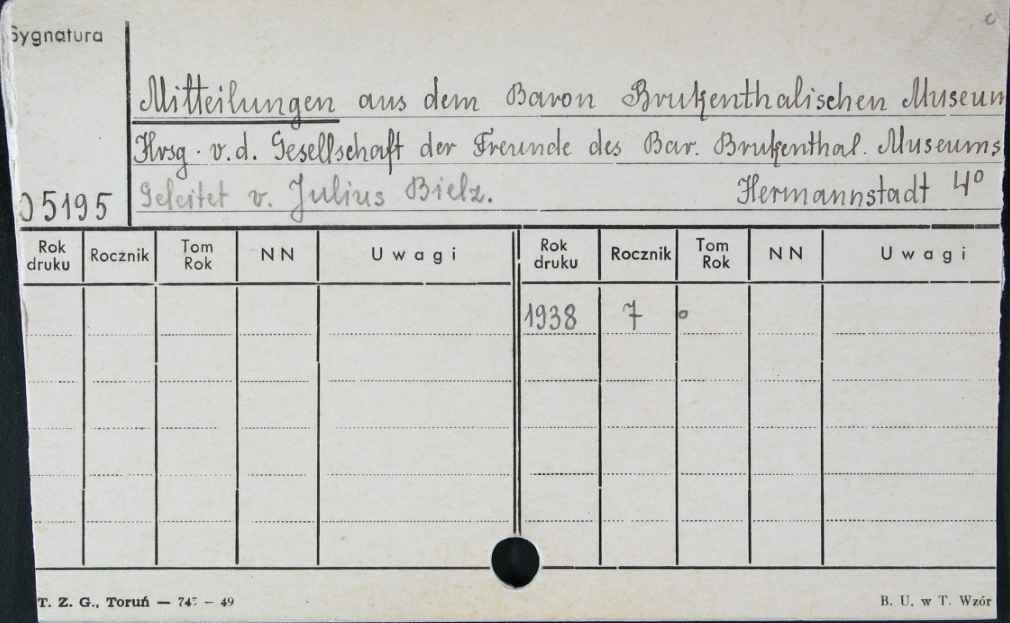 Sygnatura
Mitteilungen aus dem Baron Brukenthalischen Museum
Hrsg. v. d. Gesellschaft der Freunde des Bar. Brukenthal. Museums
Geleitet v. Julius Bielz. Hermannstadt 4º
05195
Rok druku Rocznik Tom Rok NN Uwagi Rok druku Rocznik Tom Rok NN Uwagi
1938 7 o
T. Z. G., Toruń — 745 — 49 B. U. w T. Wzór